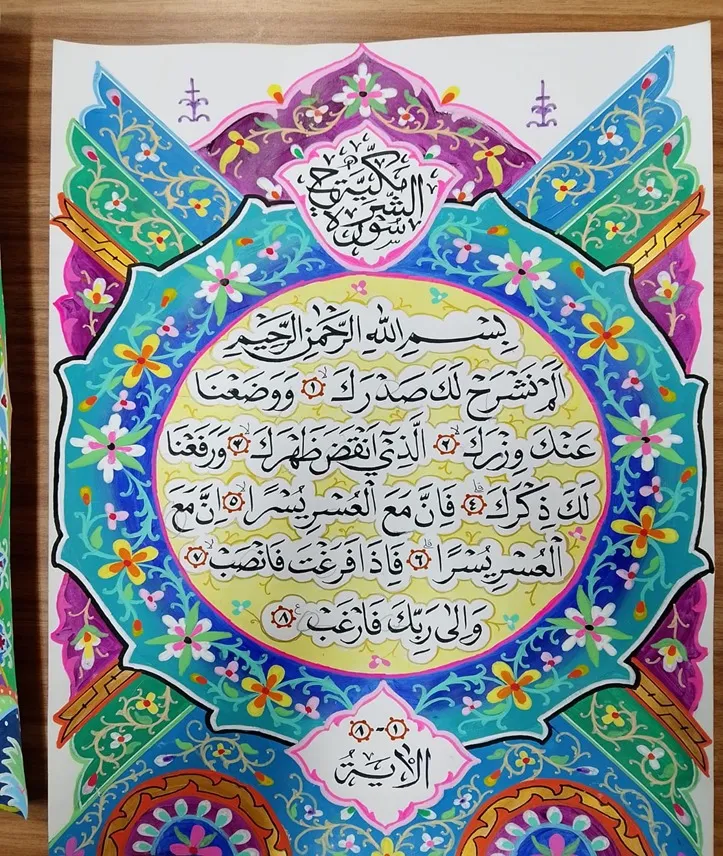 سورة الشرح مكية
بِسْمِ اللهِ الرَّحْمٰنِ الرَّحِيْمِ
اَلَمْ نَشْرَحْ لَكَ صَدْرَكَ ١ وَوَضَعْنَا
عَنْكَ وِزْرَكَ ٢ الَّذِيْٓ اَنْقَضَ ظَهْرَكَ ٣ وَرَفَعْنَا
لَكَ ذِكْرَكَ ٤ فَاِنَّ مَعَ الْعُسْرِ يُسْرًا ٥ اِنَّ مَعَ
الْعُسْرِ يُسْرًا ٦ فَاِذَا فَرَغْتَ فَانْصَبْ ٧
وَاِلٰى رَبِّكَ فَارْغَبْ ٨
١ - ٨
الْاٰيَةُ